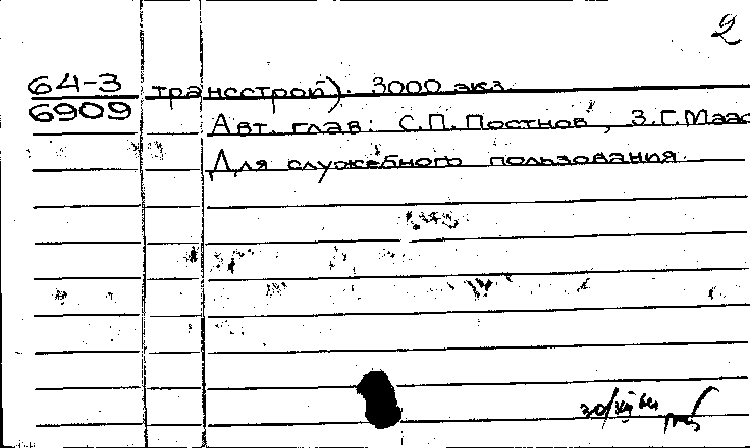 2
64-3 трансстрой). 3000 экз.
6909
Авт. глав: С.П. Постнов, З.Г. Маас
Для служебного пользования.